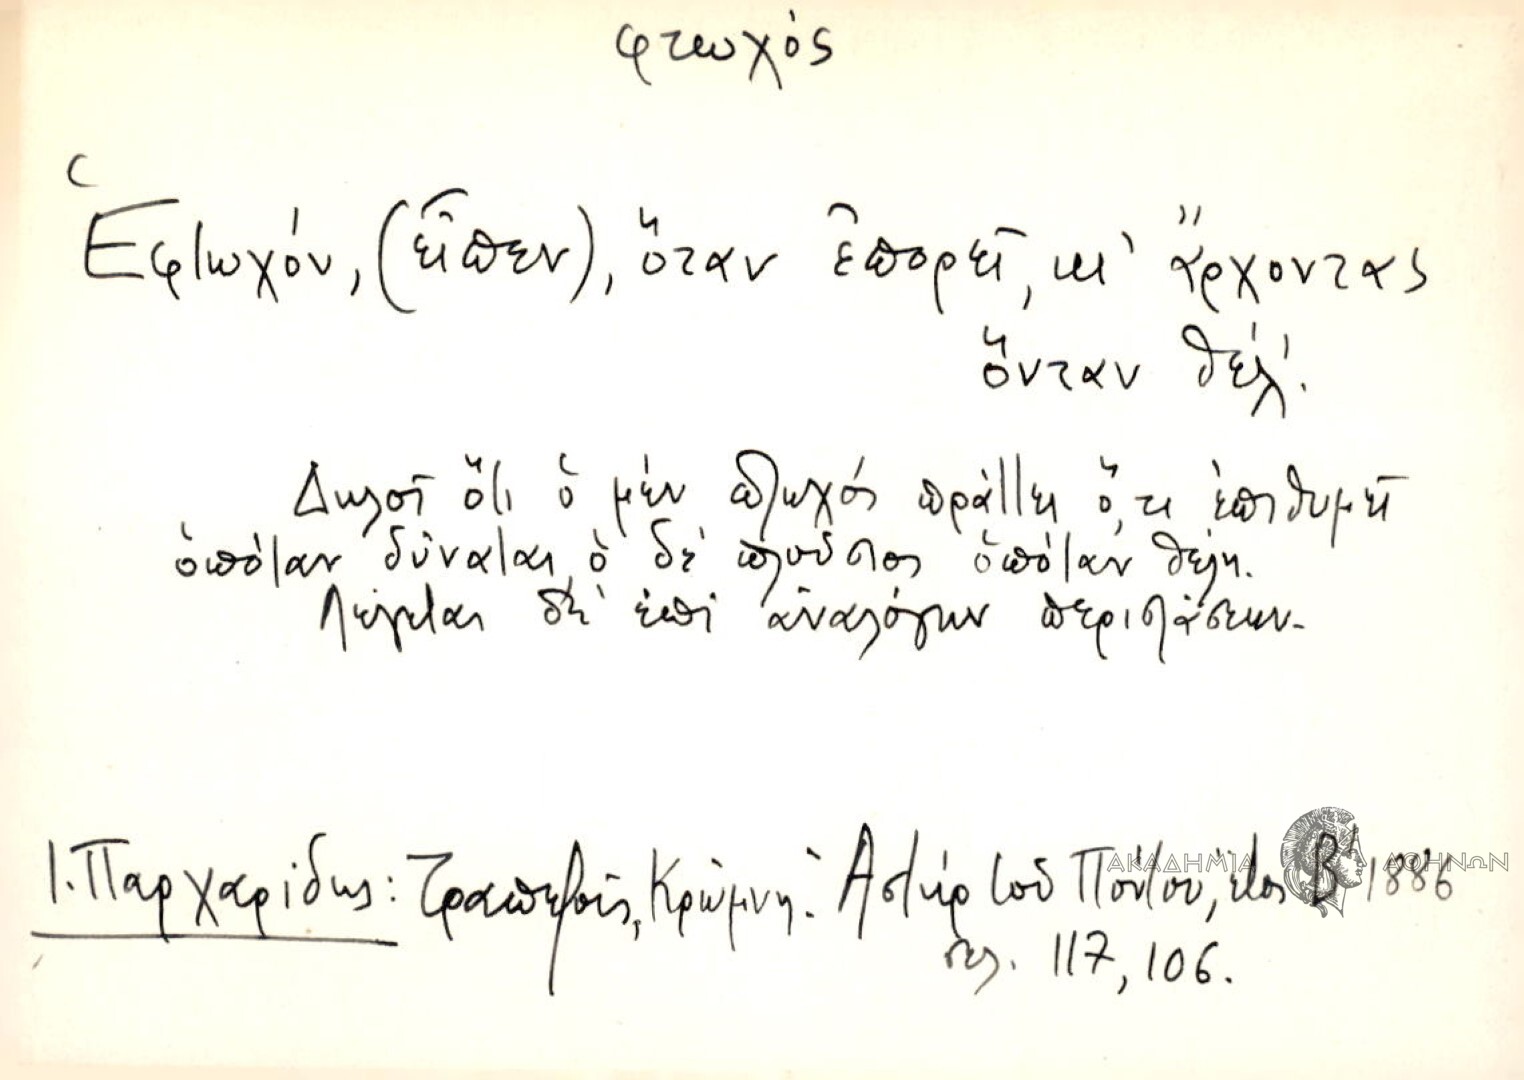 φτωχός
Ἑφτωχόν, (εἶπεν), ὅταν ἐπορεῖ, κι' ἄρχοντας
ὅνταν θέλ'.
Δηλοῖ ὅτι ὁ μὲν πτωχός πράττει ὅ,τι ἐπιθυμεῖ
ὁπόταν δύναται, ὁ δέ πλούσιος ὁπόταν θέλῃ.
Λέγεται δέ ἐπί ἀναλόγων περιστάσεων.
Ι. Παρχαρίδης: Τραπεζοῦς, Κρώμνη. Ἀστήρ τοῦ Πόντου, ἔτος Β' 1886
σελ. 117, 106.
ΑΚΑΔΗΜΙΑ ΑΘΗΝΩΝ